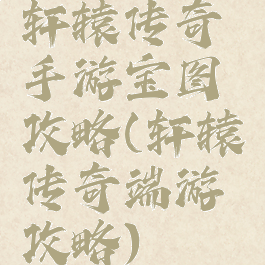 轩辕传奇
手游宝图
攻略(轩辕
传奇端游
攻略)